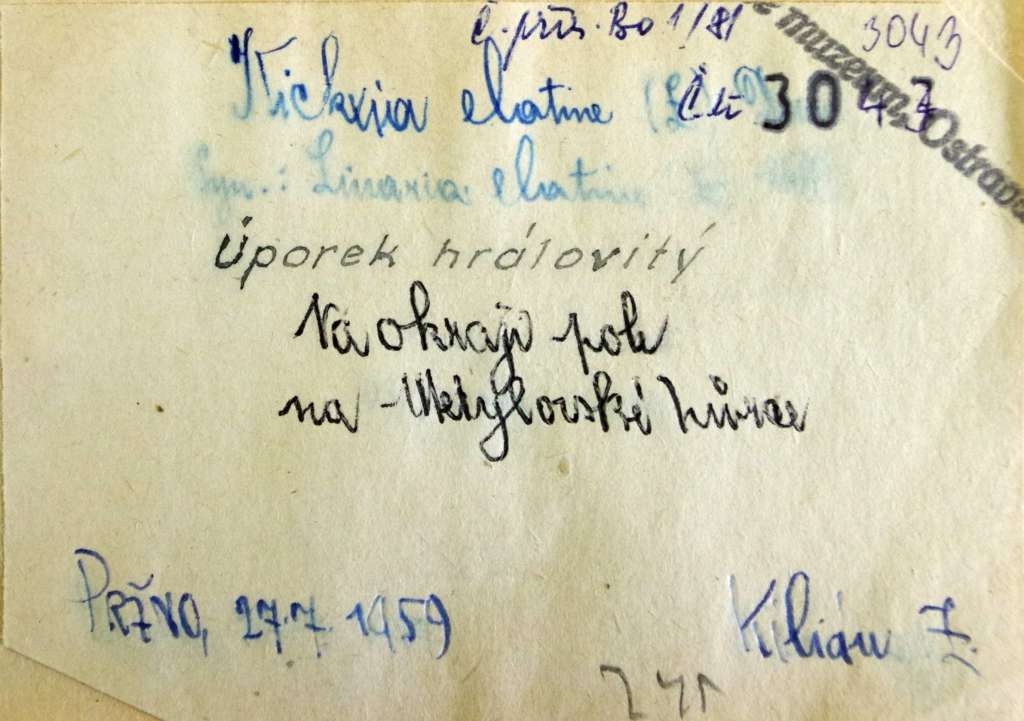 Č. přís. Bo 1/81 3043
muzeum Ostrava
Kickxia elatine (L.
Či 3043
Syn.: Linaria elatine
Úporek hrálovitý
Na okraji pole
na Metylovské hůrce
Pržno, 27.7. 1959
Kilián Z.